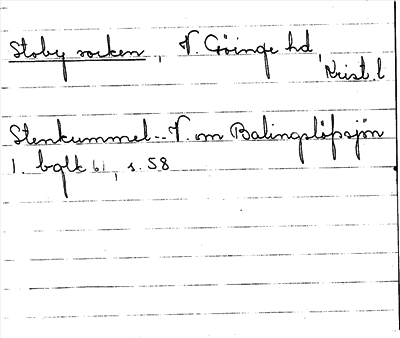 Stoby socken, V. Göinge hd,
Krist. l
Stenkummel.-- V. om Ballingslöpssjön
1. bglk 61, s. 58